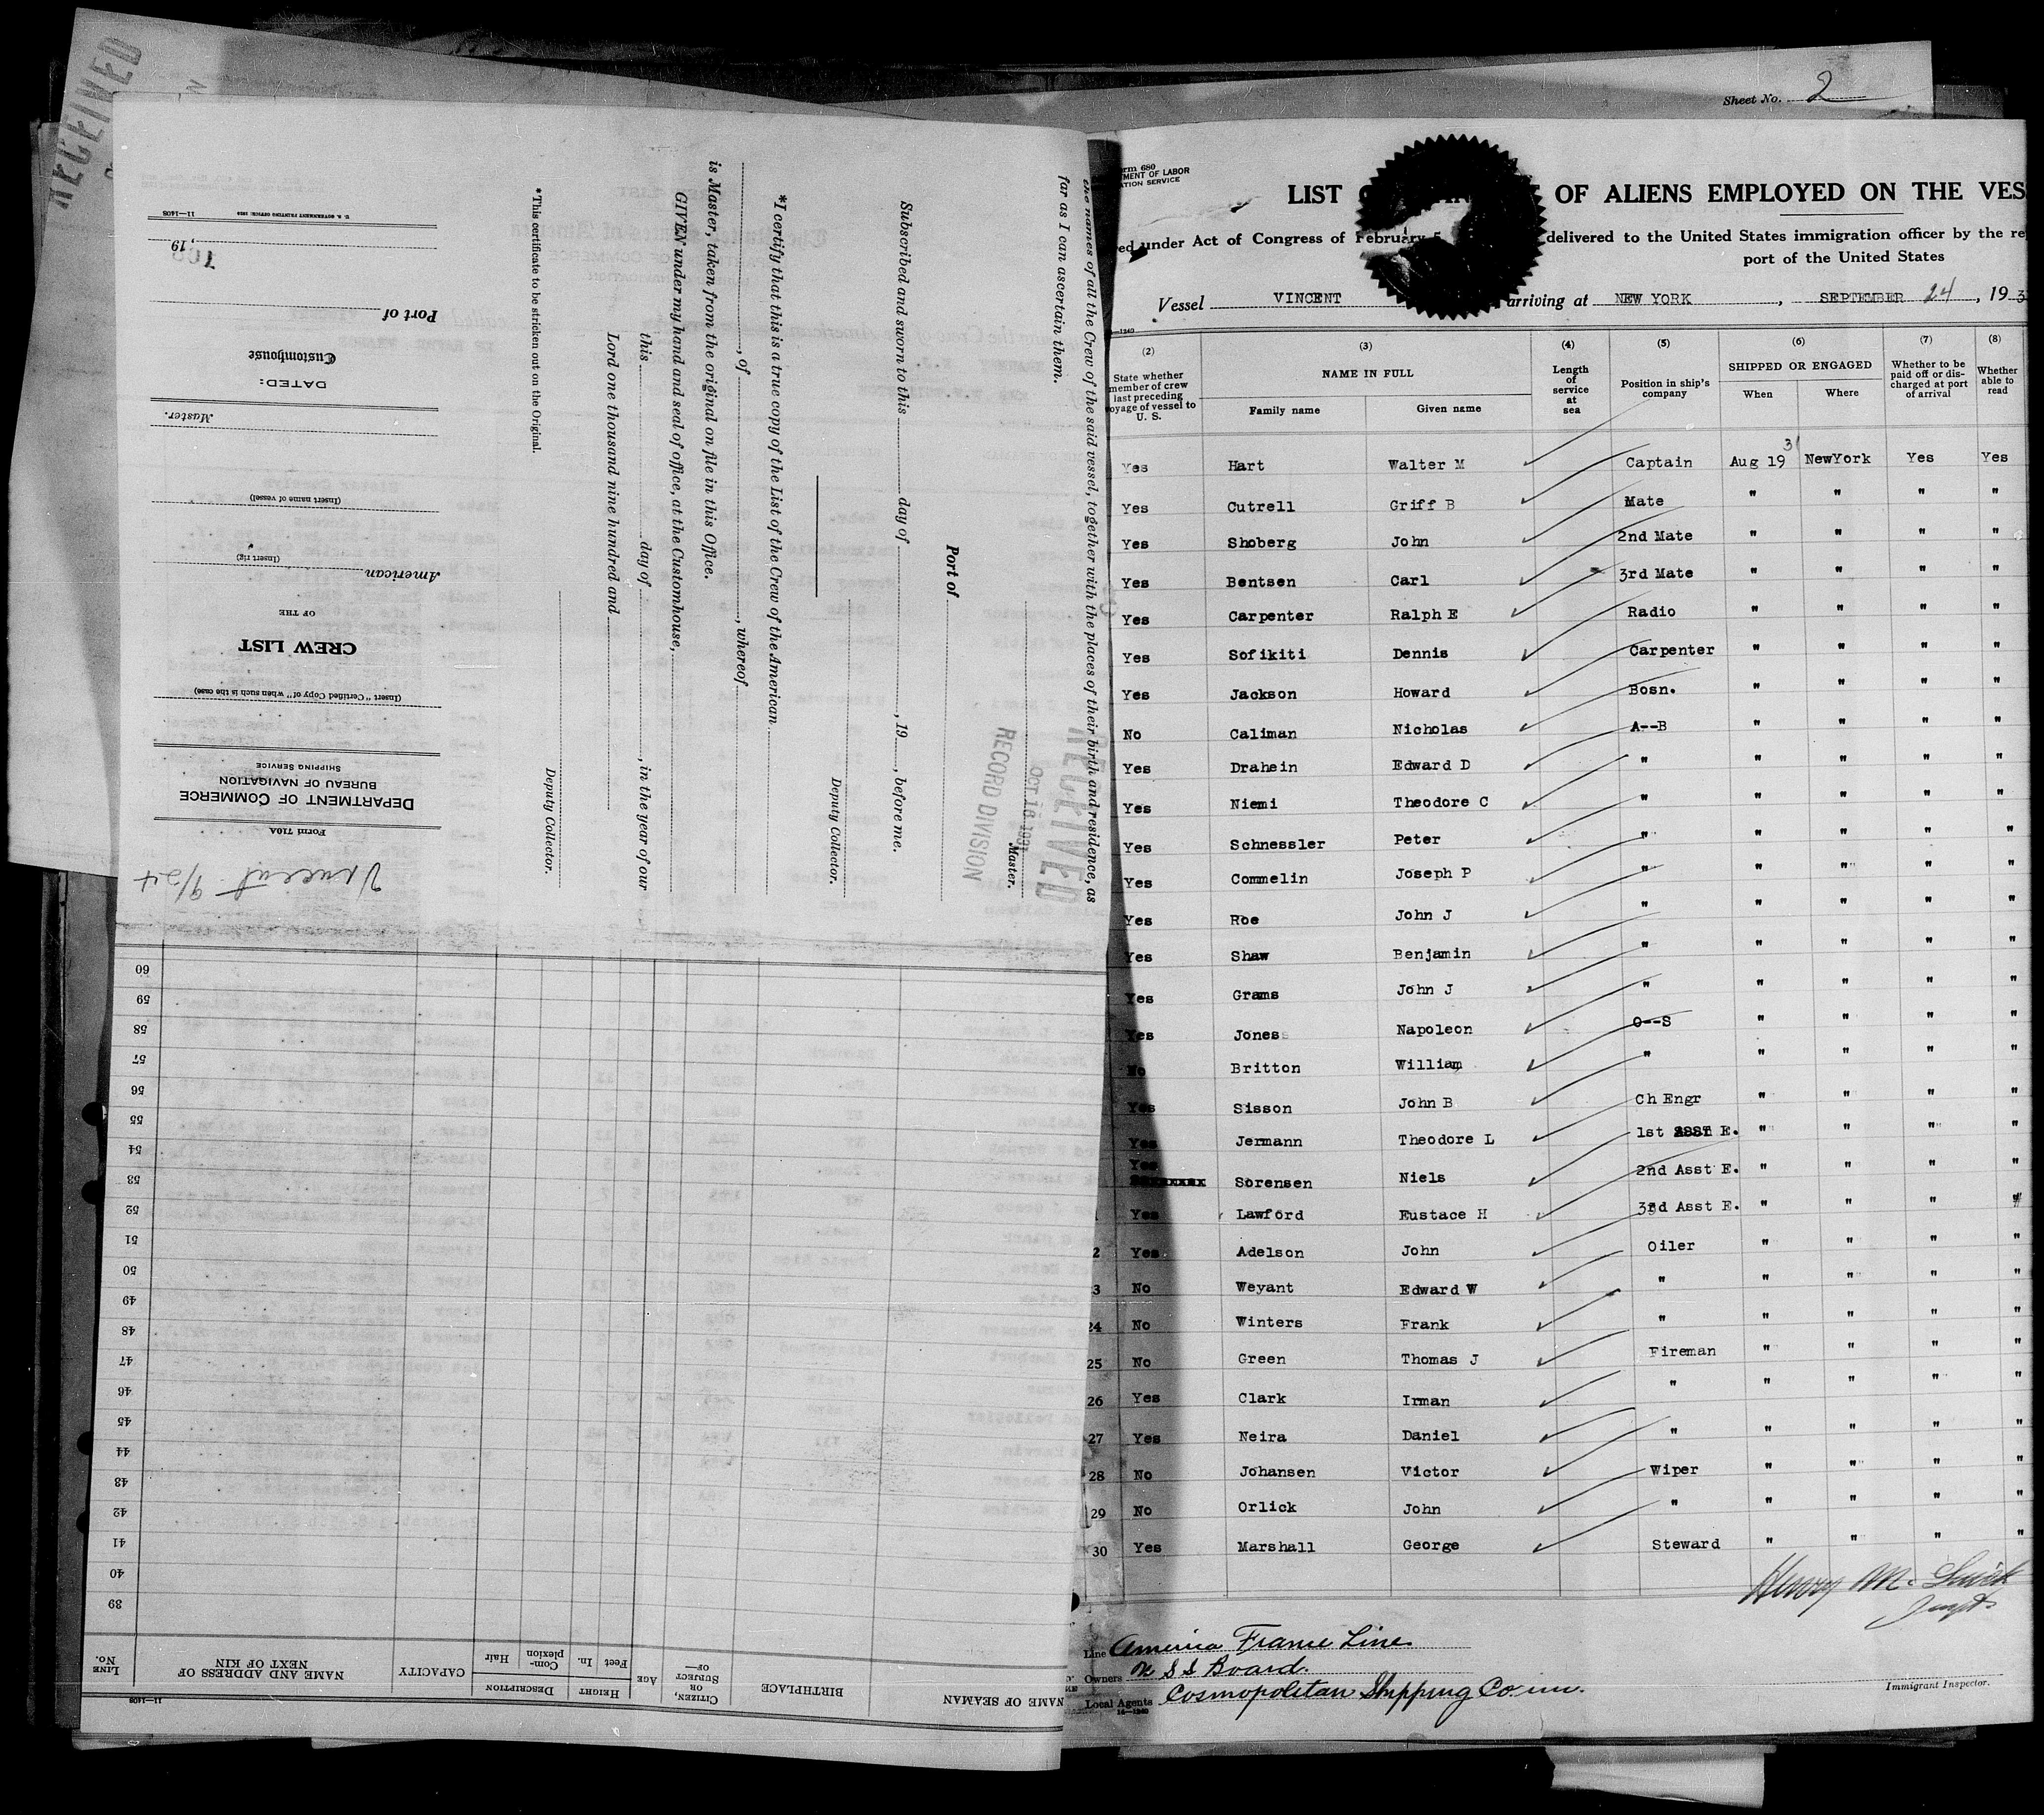 RECEIVED
Sheet No. 2
U. S. GOVERNMENT PRINTING OFFICE: 11—1408
, 19
108
Port of
Customhouse
DATED:
Master.
(Insert name of vessel)
(Insert rig)
American
OF THE
CREW LIST
(Insert "Certified Copy of" when such is the case)
SHIPPING SERVICE
BUREAU OF NAVIGATION
DEPARTMENT OF COMMERCE
Form 710A
Vincent 9/24
the names of all the Crew of the said vessel, together with the places of their birth and residence, as
far as I can ascertain them.
RECEIVED
OCT 16 1931
RECORD DIVISION
Master.
Subscribed and sworn to this day of , 19 , before me.
Port of
Deputy Collector.
*I certify that this is a true copy of the List of the Crew of the American
, of , whereof
is Master, taken from the original on file in this Office.
GIVEN under my hand and seal of office, at the Customhouse,
this day of , in the year of our
Lord one thousand nine hundred and
Deputy Collector.
*This certificate to be stricken out on the Original.
60
59
58
57
56
55
54
53
52
51
50
49
48
47
46
45
44
43
42
41
40
39
LINE No.
NAME AND ADDRESS OF NEXT OF KIN
CAPACITY
DESCRIPTION
Hair
Complexion
HEIGHT
In.
Feet
AGE
CITIZEN, OR SUBJECT OF—
BIRTHPLACE
NAME OF SEAMAN
11—1408
Form 680
MENT OF LABOR
ATION SERVICE
LIST OF ALIENS EMPLOYED ON THE VES
red under Act of Congress of February 5 delivered to the United States immigration officer by the re
port of the United States
Vessel VINCENT arriving at NEW YORK , SEPTEMBER 24 , 193
(2) (3) (4) (5) (6) (7) (8)
State whether member of crew last preceding voyage of vessel to U. S.
NAME IN FULL
Family name Given name
Length of service at sea
Position in ship's company
SHIPPED OR ENGAGED
When Where
Whether to be paid off or discharged at port of arrival
Whether able to read
Yes Hart Walter M Captain Aug 19 31 NewYork Yes Yes
Yes Cutrell Griff B Mate " " " "
Yes Shoberg John 2nd Mate " " " "
Yes Bentsen Carl 3rd Mate " " " "
Yes Carpenter Ralph E Radio " " " "
Yes Sofikiti Dennis Carpenter " " " "
Yes Jackson Howard Bosn. " " " "
No Caliman Nicholas A--B " " " "
Yes Drahein Edward D " " " " "
Yes Niemi Theodore C " " " " "
Yes Schnessler Peter " " " " "
Yes Commelin Joseph P " " " " "
Yes Roe John J " " " " "
Yes Shaw Benjamin " " " " "
Yes Grams John J " " " " "
Yes Jones Napoleon O--S " " " "
No Britton William " " " " "
Yes Sisson John B Ch Engr " " " "
Yes Jermann Theodore L 1st ASST E. " " " "
Yes Sorensen Niels 2nd Asst E. " " " "
Yes Lawford Eustace H 3rd Asst E. " " " "
2 Yes Adelson John Oiler " " " "
3 No Weyant Edward W " " " " "
24 No Winters Frank " " " " "
25 No Green Thomas J Fireman " " " "
26 Yes Clark Irman " " " " "
27 Yes Neira Daniel " " " " "
28 No Johansen Victor Wiper " " " "
29 No Orlick John " " " " "
30 Yes Marshall George Steward " " " "
Henry M.
Line America France Line
Owners U S S Board.
Local Agents Cosmopolitan Shipping Co. inc.
14—1240
Immigrant Inspector.